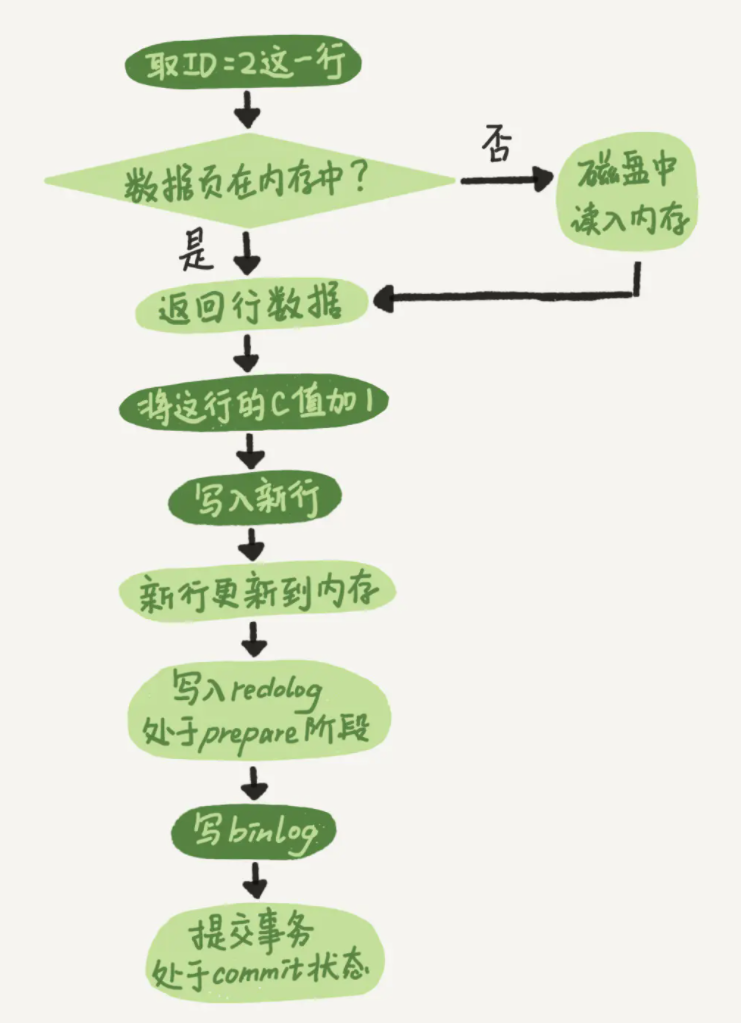 取ID=2这一行
数据页在内存中？
否
磁盘中
读入内存
是
返回行数据
将这行的C值加1
写入新行
新行更新到内存
写入redolog
处于prepare阶段
写binlog
提交事务
处于commit状态